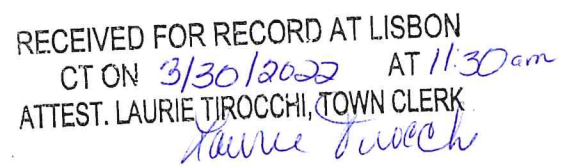 RECEIVED FOR RECORD AT LISBON
CT ON 3/30/2022 AT 11:30am
ATTEST. LAURIE TIROCCHI, TOWN CLERK
Laurie Tirocchi